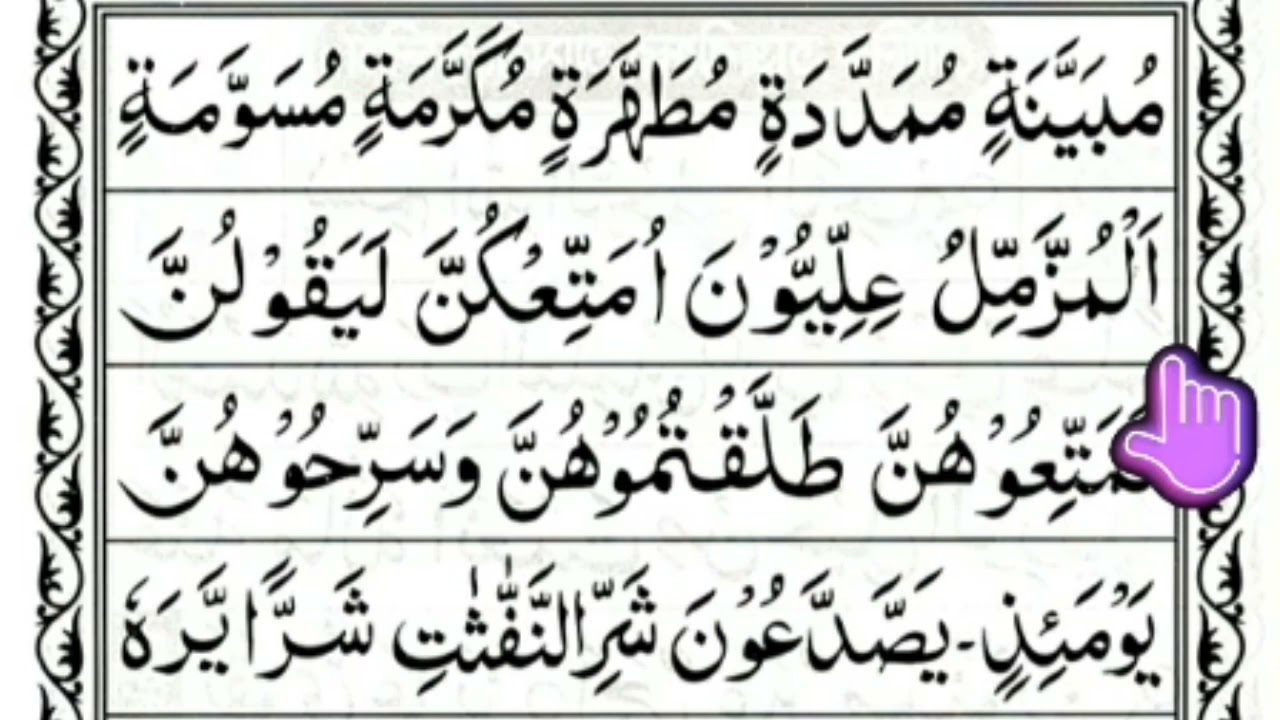 مُبَيَّنَةٍ مُمَدَّدَةٍ مُطَهَّرَةٍ مُكَرَّمَةٍ مُسَوَّمَةٍ
اَلْمُزَّمِّلُ عِلِّيُّوْنَ اُمَتِّعْكُنَّ لَيَقُوْلُنَّ
طَلَّقْتُمُوْهُنَّ وَسَرِّحُوْهُنَّ
يَوْمَئِذٍ۔يَصَّدَّعُوْنَ شَرِّالنَّفّٰثٰتِ شَرًّا يَّرَهٗ